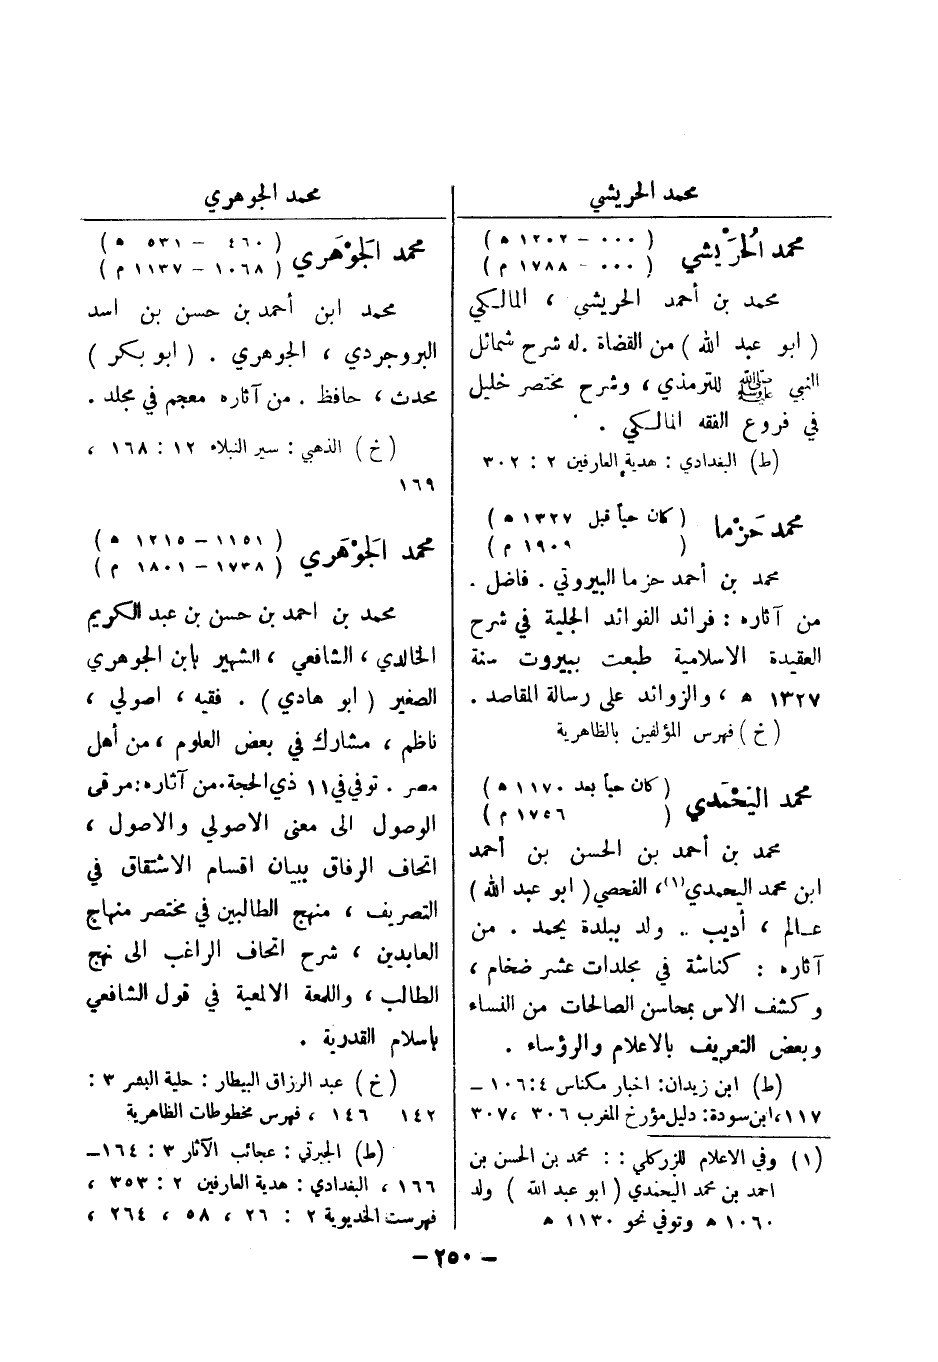 محمد الحريشي
محمد الحُرَيْشي
( ٠٠٠ – ١٢٠٢ ه )
( ٠٠٠ – ١٧٨٨ م )
محمد بن أحمد الحريشي ، المالكي
( ابو عبد الله ) من القضاة . له شرح شمائل
النبي ﷺ للترمذي ، وشرح مختصر خليل
في فروع الفقه المالكي .
(ط) البغدادي : هدية العارفين ٢ : ٣٠٢
محمد حَزْما
( كان حياً قبل ١٣٢٧ ه )
( ١٩٠٩ م )
محمد بن أحمد حزما البيروتي . فاضل .
من آثاره : فرائد الفوائد الجلية في شرح
العقيدة الاسلامية طبعت ببيروت سنة
١٣٢٧ ه ، والزوائد على رسالة المقاصد .
(خ) فهرس المؤلفين بالظاهرية
محمد اليَحْمَدي
( كان حياً بعد ١١٧٠ ه )
( ١٧٥٦ م )
محمد بن أحمد بن الحسن بن أحمد
ابن محمد اليحمدي(١)، الفحصي ( ابو عبد الله )
عالم ، أديب .. ولد ببلدة يحمد . من
آثاره : كناشة في مجلدات عشر ضخام ،
وكشف الاس بمحاسن الصالحات من النساء
وبعض التعريف بالاعلام والرؤساء .
(ط) ابن زيدان: اخبار مكناس ٤ : ١٠٦ –
١١٧ ، ابن سودة: دليل مؤرخ المغرب ٣٠٦ ، ٣٠٧
(١) وفي الاعلام للزركلي : : محمد بن الحسن بن
احمد بن محمد اليحندي ( ابو عبد الله ) ولد
١٠٦٠ ه وتوفي نحو ١١٣٠ ه
محمد الجوهري
محمد الجَوْهَري
( ٤٦٠ – ٥٣١ ه )
( ١٠٦٨ – ١١٣٧ م )
محمد ابن أحمد بن حسن بن اسد
البروجردي ، الجوهري . ( ابو بكر )
محدث ، حافظ . من آثاره معجم في مجلد .
(خ) الذهبي : سير النبلاء ١٢ : ١٦٨ ،
١٦٩
محمد الجَوْهَري
( ١١٥١ – ١٢١٥ ه )
( ١٧٣٨ – ١٨٠١ م )
محمد بن احمد بن حسن بن عبد الكريم
الخالدي ، الشافعي ، الشهير بابن الجوهري
الصغير ( ابو هادي ) . فقيه ، اصولي ،
ناظم ، مشارك في بعض العلوم ، من أهل
مصر . توفي في ١١ ذي الحجة . من آثاره : مرقى
الوصول الى معنى الاصولي والاصول ،
اتحاف الرفاق ببيان اقسام الاشتقاق في
التصريف ، منهج الطالبين في مختصر منهاج
العابدين ، شرح اتحاف الراغب الى نهج
الطالب ، واللمعة الالمعية في قول الشافعي
باسلام القدرية .
(خ) عبد الرزاق البيطار : حلية البشر ٣ :
١٤٢ ١٤٦ ، فهرس مخطوطات الظاهرية
(ط) الجبرتي : عجائب الآثار ٣ : ١٦٤ –
١٦٦ ، البغدادي : هدية العارفين ٢ : ٣٥٣ ،
فهرست الخديوية ٢ : ٢٦ ، ٥٨ ، ٢٦٤ ،
– ٢٥٠ –